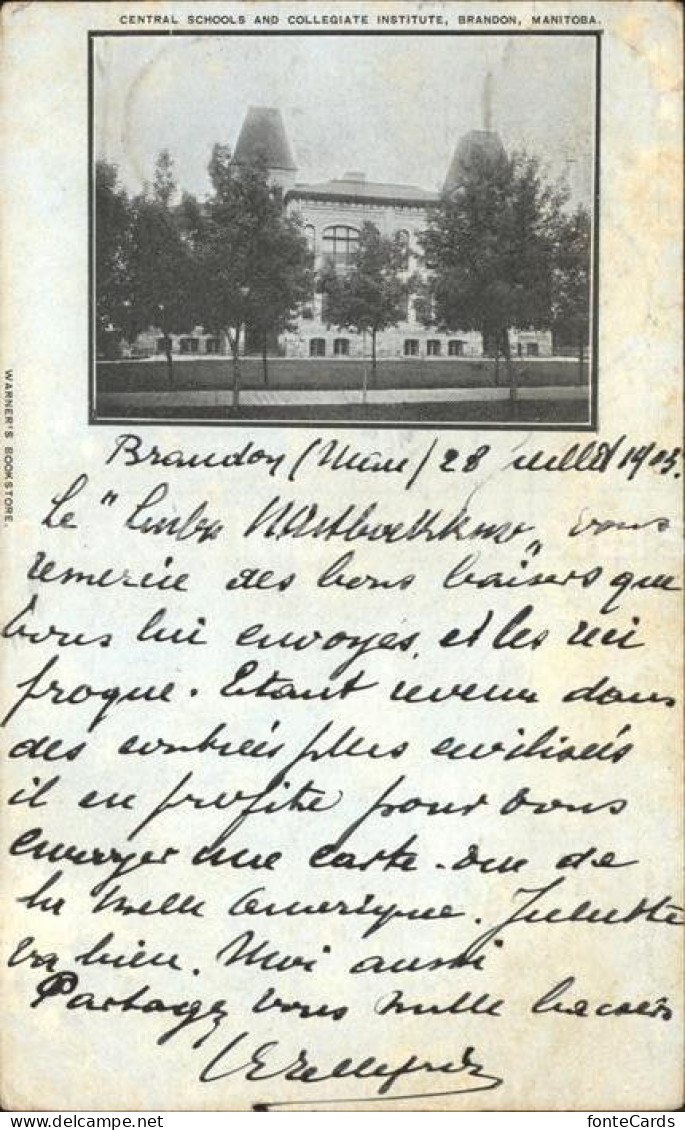 CENTRAL SCHOOLS AND COLLEGIATE INSTITUTE, BRANDON, MANITOBA.
WARNER'S BOOKSTORE.
Brandon (Man) 28 juillet 1903.
Le " vous
remercie des bons baisers que
vous lui envoyés, et les réci
proque. Etant revenu dans
des contrées plus civilisés
il en profite pour vous
envoyer une carte. vue de
la belle Amérique. Juliette
va bien. Moi aussi
Partagez vous mille baisers
fonteCards
www.delcampe.net